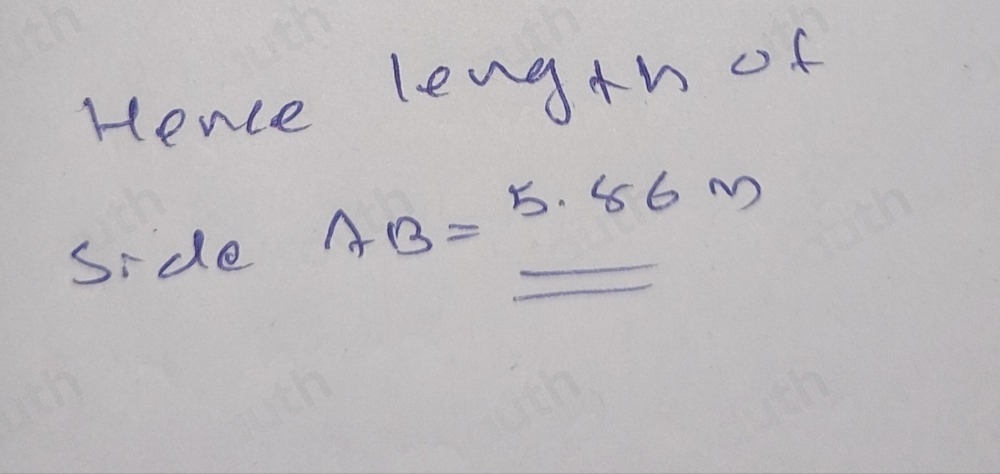 Hence length of
side AB = 5.86 m